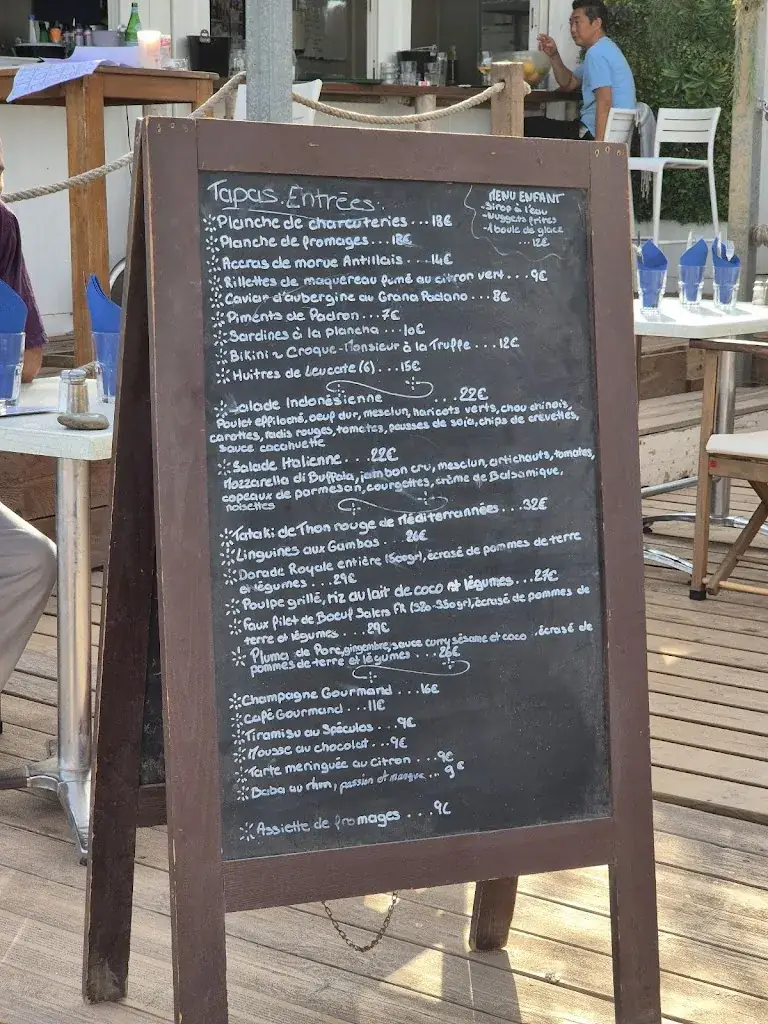 Tapas. Entrées.
Planche de charcuteries...18€
Planche de fromages...18€
Accras de morue Antillais...14€
Rillettes de maquereau fumé au citron vert...9€
Caviar d'aubergine au Grana Padano...8€
Piments de Padron...7€
Sardines à la plancha...10€
Bikini ~ Croque-Monsieur à la Truffe...12€
Huitres de Leucate (6)...15€
MENU ENFANT
-Sirop à l'eau
-Nuggets frites
-1 boule de glace
...12€
Salade Indonésienne ...22€
Poulet effiloché, oeuf dur, mesclun, haricots verts, chou chinois,
carottes, radis rouges, tomates, pousses de soja, chips de crevettes,
sauce cacahuette
Salade Italienne...22€
Mozzarella di Buffala, jambon cru, mesclun, artichauts, tomates,
copeaux de parmesan, courgettes, crème de Balsamique,
noisettes
Tataki de Thon rouge de Méditerrannées...32€
Linguines aux Gambas...26€
Dorade Royale entière (500gr), écrasé de pommes de terre
et légumes...29€
Poulpe grillé, riz au lait de coco et légumes...27€
Faux filet de Boeuf Salers FR (320-350gr), écrasé de pommes de
terre et légumes...29€
Pluma de Porc, gingembre, sauce curry sésame et coco, écrasé de
pommes de terre et légumes...26€
Champagne Gourmand...16€
Café Gourmand...11€
Tiramisu au Spéculos...9€
Mousse au chocolat...9€
Tarte meringuée au citron...9€
Baba au rhum, passion et mangue...9€
Assiette de fromages...9€